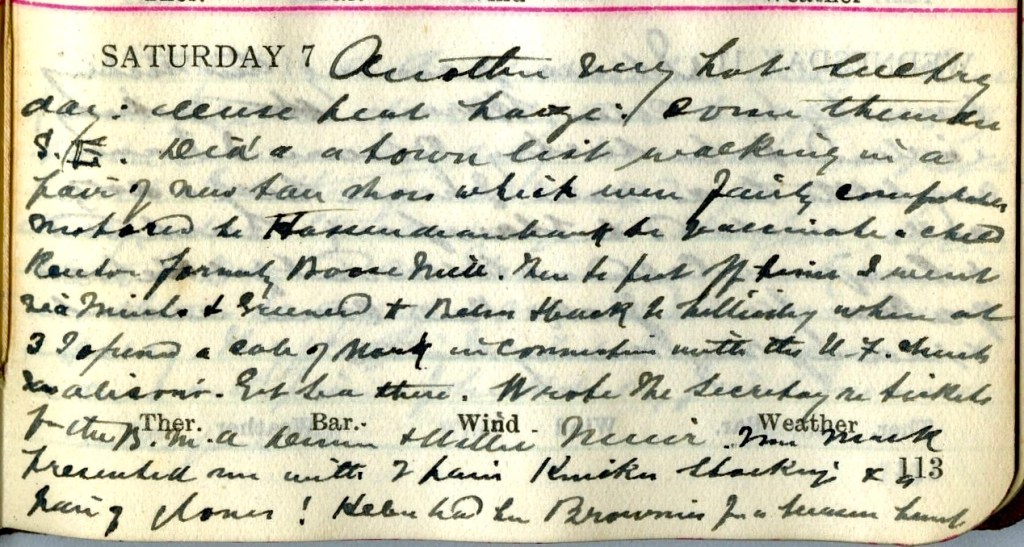 Ther. Bar. Wind Weather
SATURDAY 7 Another very hot sultry
day: dense heat haze: some thunder
S.E. Did a town list walking in a
pair of new tan shoes which were fairly comfortable
Motored to Hassendeanburn to vaccinate a child
formerly Boose Mill. Then to put off time I went
via Minto & & Back to Lilliesleaf where at
3 I opened a sale of Work in connection with the U.F. Church
at alison's. Got tea there. Wrote the Secretary re tickets
for the B.M.A Dinner & Willie Muir. Mrs
Ther. Bar. Wind Weather
presented me with 2 pairs Knicker Stockings & a
113
pair of gloves! Helen had her Brownies for a treasure hunt